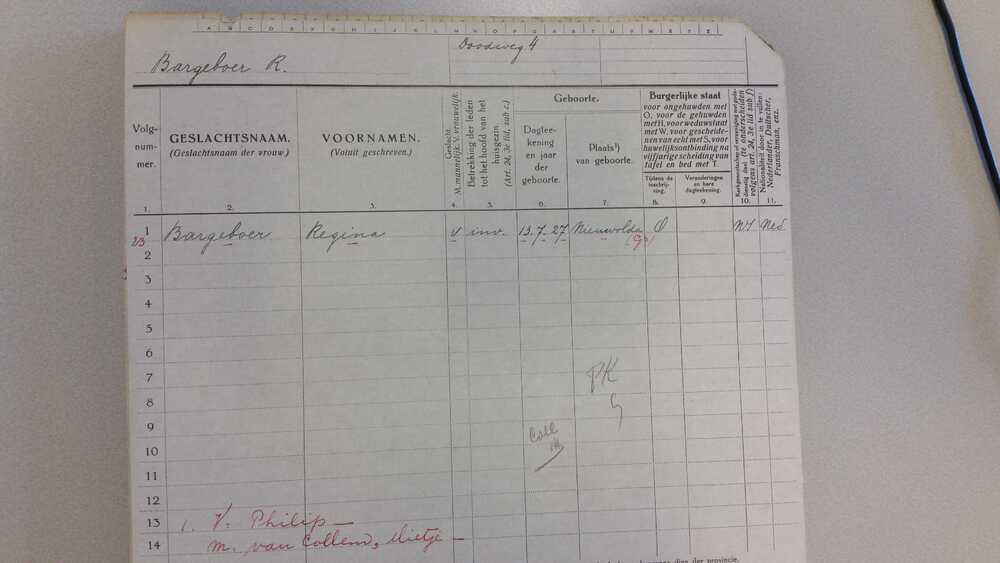 A B C D E F G H I J K L M N O P Q R S T U V W X Y Z
Bargeboer R.
Doodweg 4
Volg-
num-
mer.
GESLACHTSNAAM.
(Geslachtsnaam der vrouw.)
VOORNAMEN.
(Voluit geschreven.)
Geslacht.
M. mannelijk. V. vrouwelijk.
Betrekking der leden
tot het hoofd van het
huisgezin.
(Art. 24, 3e lid, sub c.)
Geboorte.
Dagtee-
kening
en jaar
der
geboorte.
Plaats¹)
van geboorte.
Burgerlijke staat
voor ongehuwden met
O, voor de gehuwden
met H, voor weduwstaat
met W, voor gescheide-
nen van echt met S, voor
huwelijksontbinding na
vijfjarige scheiding van
tafel en bed met T.
Tijdens de
inschrij-
ving.
Veranderingen
en hare
dagteekening.
volgens art. 24, 3e lid sub f)
Nationaliteit door in te vullen:
Nederlander, Duitscher,
Franschman, enz.
1. 2. 3. 4. 5. 6. 7. 8. 9. 10. 11.
1 Bargeboer Regina V inv. 13.7.27 Nieuwolda O NI Ned
(Gr)
2
3
4
5
6
7
PK
8
9
Coll
10
11
12
13 1. V. Philip —
14 m. van Collem, Mietje —
dien der provincie.